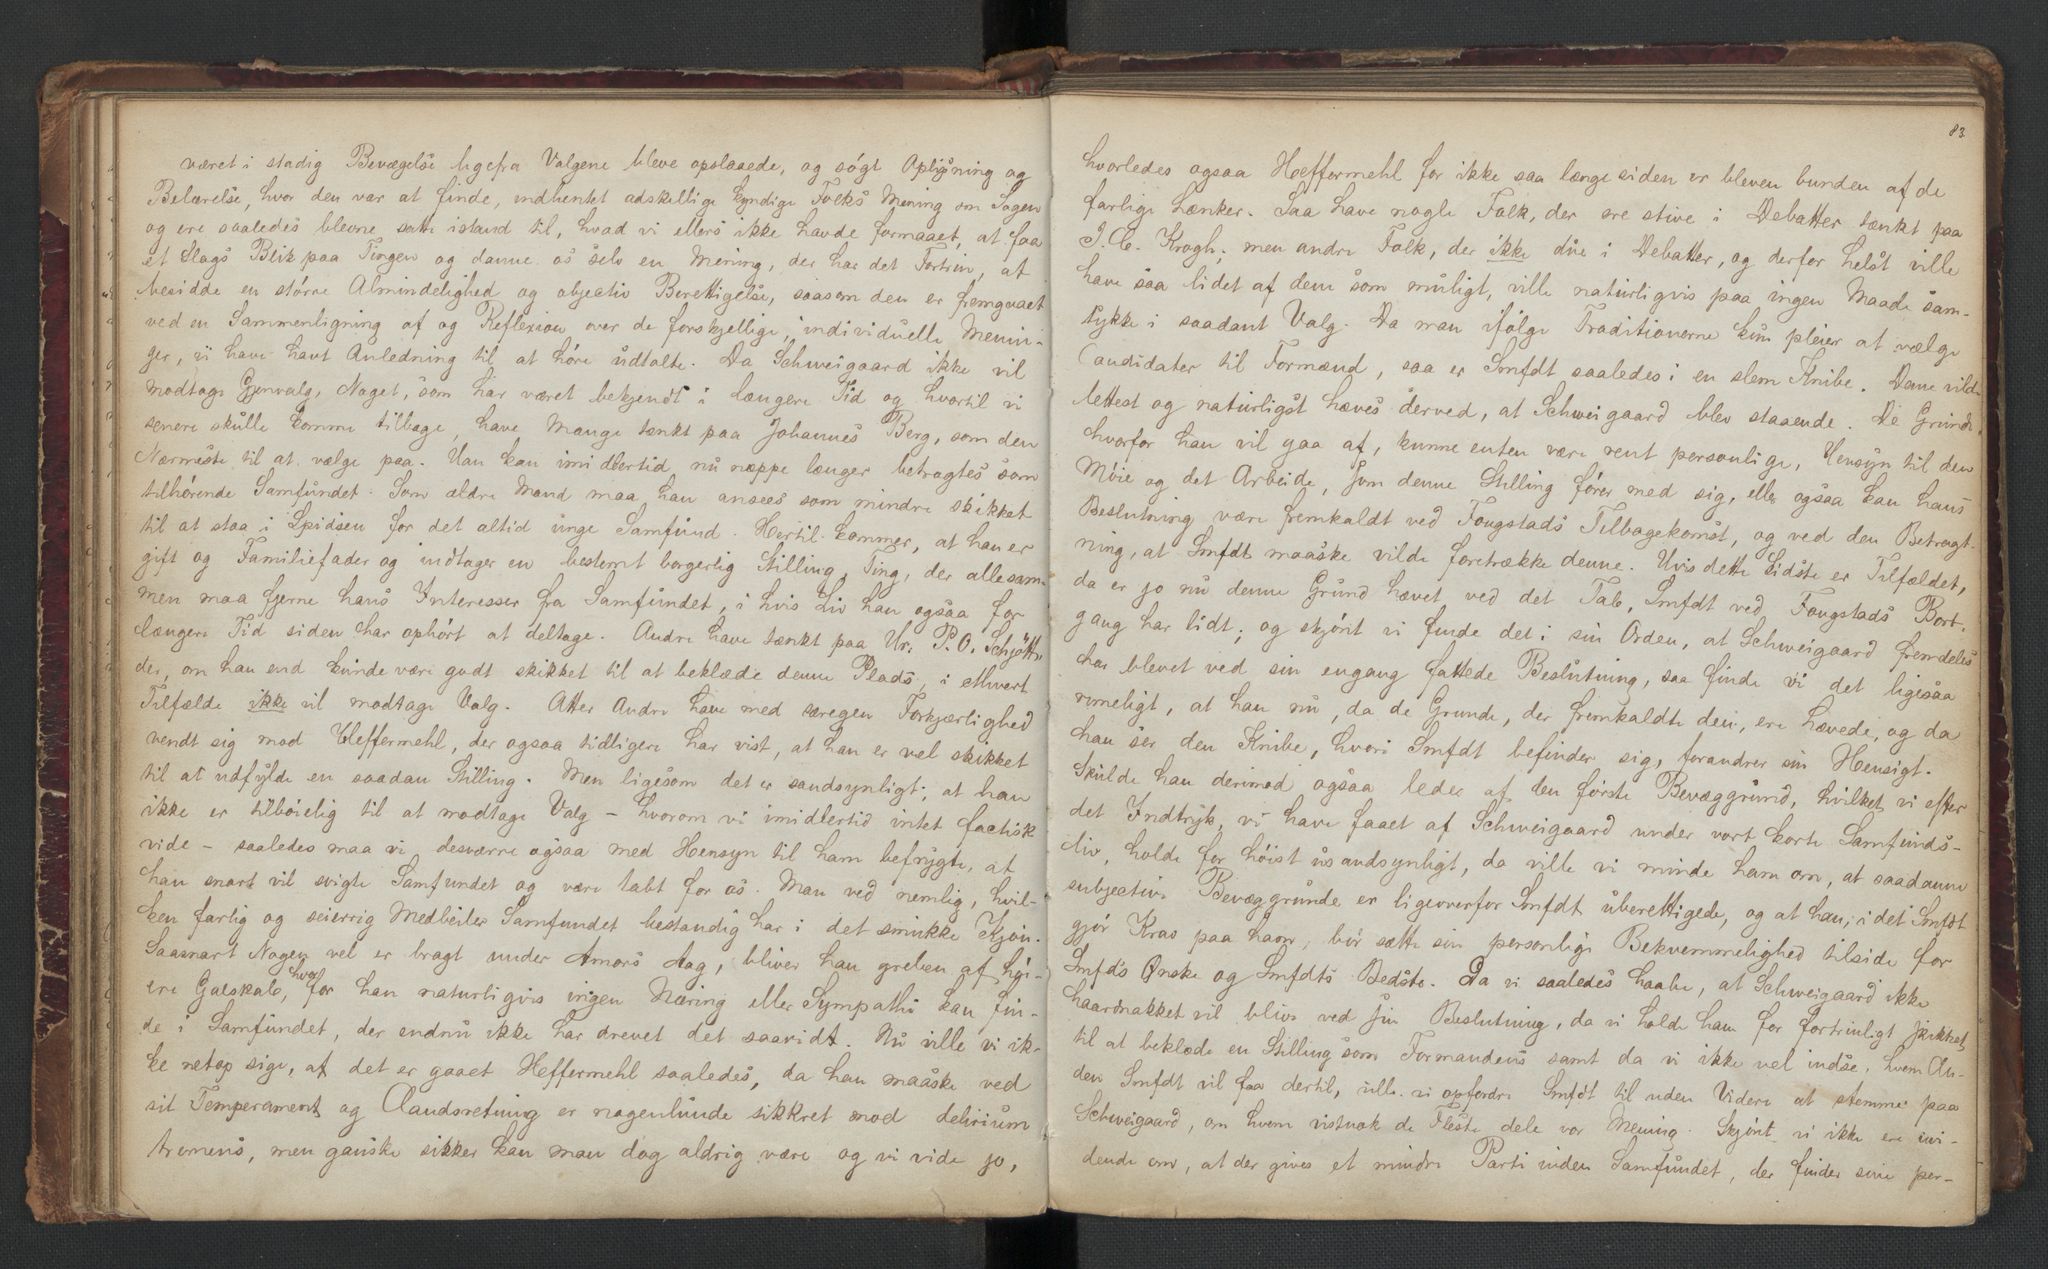 været i stadig Bevægelse ligefra Valgene bleve opslaaede, og søgt Oplysning og
Belærelse, hvor den var at finde, indhentet adskellige kyndige Folks Mening om Sagen
og ere saaledes blevne satte istand til, hvad vi ellers ikke havde formaaet, at faa
et Slags Blik paa Tingen og danne os selv en Mening, der har det Fortrin, at
besidde en større Almindelighed og objectiv Berettigelse, saasom den er fremgaaet
ved en Sammenligning af og Reflexion over de forskjellige, individuelle Menin-
ger, vi have havt Anledning til at høre udtalte. Da Schweigaard ikke vil
modtage Gjenvalg, Noget, som har været bekjendt i længere Tid og hvortil vi
senere skulle komme tilbage, have Mange tænkt paa Johannes Berg, som den
Nærmeste til at vælge paa. Han kan imidlertid nu næppe længer betragtes som
tilhørende Samfundet. Som ældre Mand maa han ansees som mindre skikket
til at staa i Spidsen for det altid unge Samfund. Hertil kommer, at han er
gift og Familiefader og indtager en bestemt borgerlig Stilling, Ting, der allesam-
men maa fjerne hans Interesser fra Samfundet, i hvis Liv han ogsaa for
længere Tid siden har ophørt at deltage. Andre have tænkt paa Hr. P. O. Schjøtt,
der, om han end kunde være godt skikket til at beklæde denne Plads, i ethvert
Tilfælde ikke vil modtage Valg. Atter Andre have med særegen Forkjærlighed
vendt sig mod Heffermehl, der ogsaa tidligere har vist, at han er vel skikket
til at udfylde en saadan Stilling. Men ligesom det er sandsynligt, at han
ikke er tilbøielig til at modtage Valg – hvorom vi imidlertid intet factisk
vide – saaledes maa vi desværre ogsaa med Hensyn til ham befrygte, at
han snart vil svigte Samfundet og være tabt for os. Man ved nemlig, hvil-
ken farlig og seierrig Medbeiler Samfundet bestandig har i det smukke Kjøn.
Saasnart Nogen vel er bragt under Amors Aag, bliver han greben af høi-
ere Galskab, hvorfor han naturligvis ingen Næring eller Sympathi kan fin-
de i Samfundet, der endnu ikke har drevet det saavidt. Nu ville vi ik-
ke netop sige, at det er gaaet Heffermehl saaledes, da han maaske ved
sit Temperament og Aandsretning er nogenlunde sikkret mod delirium
tremens, men ganske sikker kan man dog aldrig være og vi vide jo,
83.
hvorledes ogsaa Heffermehl for ikke saa længe siden er bleven bunden af de
farlige Lænker. Saa have nogle Folk, der ere stive i Debatter tænkt paa
J. C. Krogh; men andre Folk, der ikke due i Debatter, og derfor helst ville
have saa lidet af dem som muligt, ville naturligvis paa ingen Maade sam-
tykke i saadant Valg. Da man ifølge Traditionerne kun pleier at vælge
Candidater til Formænd, saa er Smfdt saaledes i en slem Knibe. Denne vilde
lettest og naturligst hæves derved, at Schweigaard blev staaende. De Grunde,
hvorfor han vil gaa af, kunne enten være rent personlige, Hensyn til den
Møie og det Arbeide, som denne Stilling fører med sig, eller ogsaa kan hans
Beslutning være fremkaldt ved Fougstads Tilbagekomst, og ved den Betragt-
ning, at Smfdt maaske vilde foretrække denne. Hvis dette Sidste er Tilfældet,
da er jo nu denne Grund hævet ved det Tab, Smfdt ved Fougstads Bort-
gang har lidt; og skjønt vi finde det i sin Orden, at Schweigaard fremdeles
har blevet ved sin engang fattede Beslutning, saa finde vi det ligesaa
rimeligt, at han nu, da de Grunde, der fremkaldte den, ere hævede, og da
han ser den Knibe, hvori Smfdt befinder sig, forandrer sin Hensigt.
Skulde han derimod ogsaa ledes af den første Bevæggrund, hvilket vi efter
det Indtryk, vi have faaet af Schweigaard under vort korte Samfunds-
liv, holde for høist usandsynligt, da ville vi minde ham om, at saadanne
subjective Bevæggrunde er ligeoverfor Smfdt uberettigede, og at han, i det Smfdt
gjør Krav paa ham, bør sætte sin personlige Bekvemmelighed tilside for
Smfds Ønske og Smfdts Bedste. Da vi saaledes haabe, at Schweigaard ikke
haardnakket vil blive ved sin Beslutning, da vi holde ham for fortrinligt skikket
til at beklæde en Stilling som Formandens samt da vi ikke vel indse, hvem An-
den Smfdt vil faa dertil, ville vi opfordre Smfdt til uden Videre at stemme paa
Schweigaard, om hvem vistnok de Fleste dele vor Mening. Skjønt vi ikke ere uvi-
dende om, at der gives et mindre Parti inden Samfundet, der finder sine per-